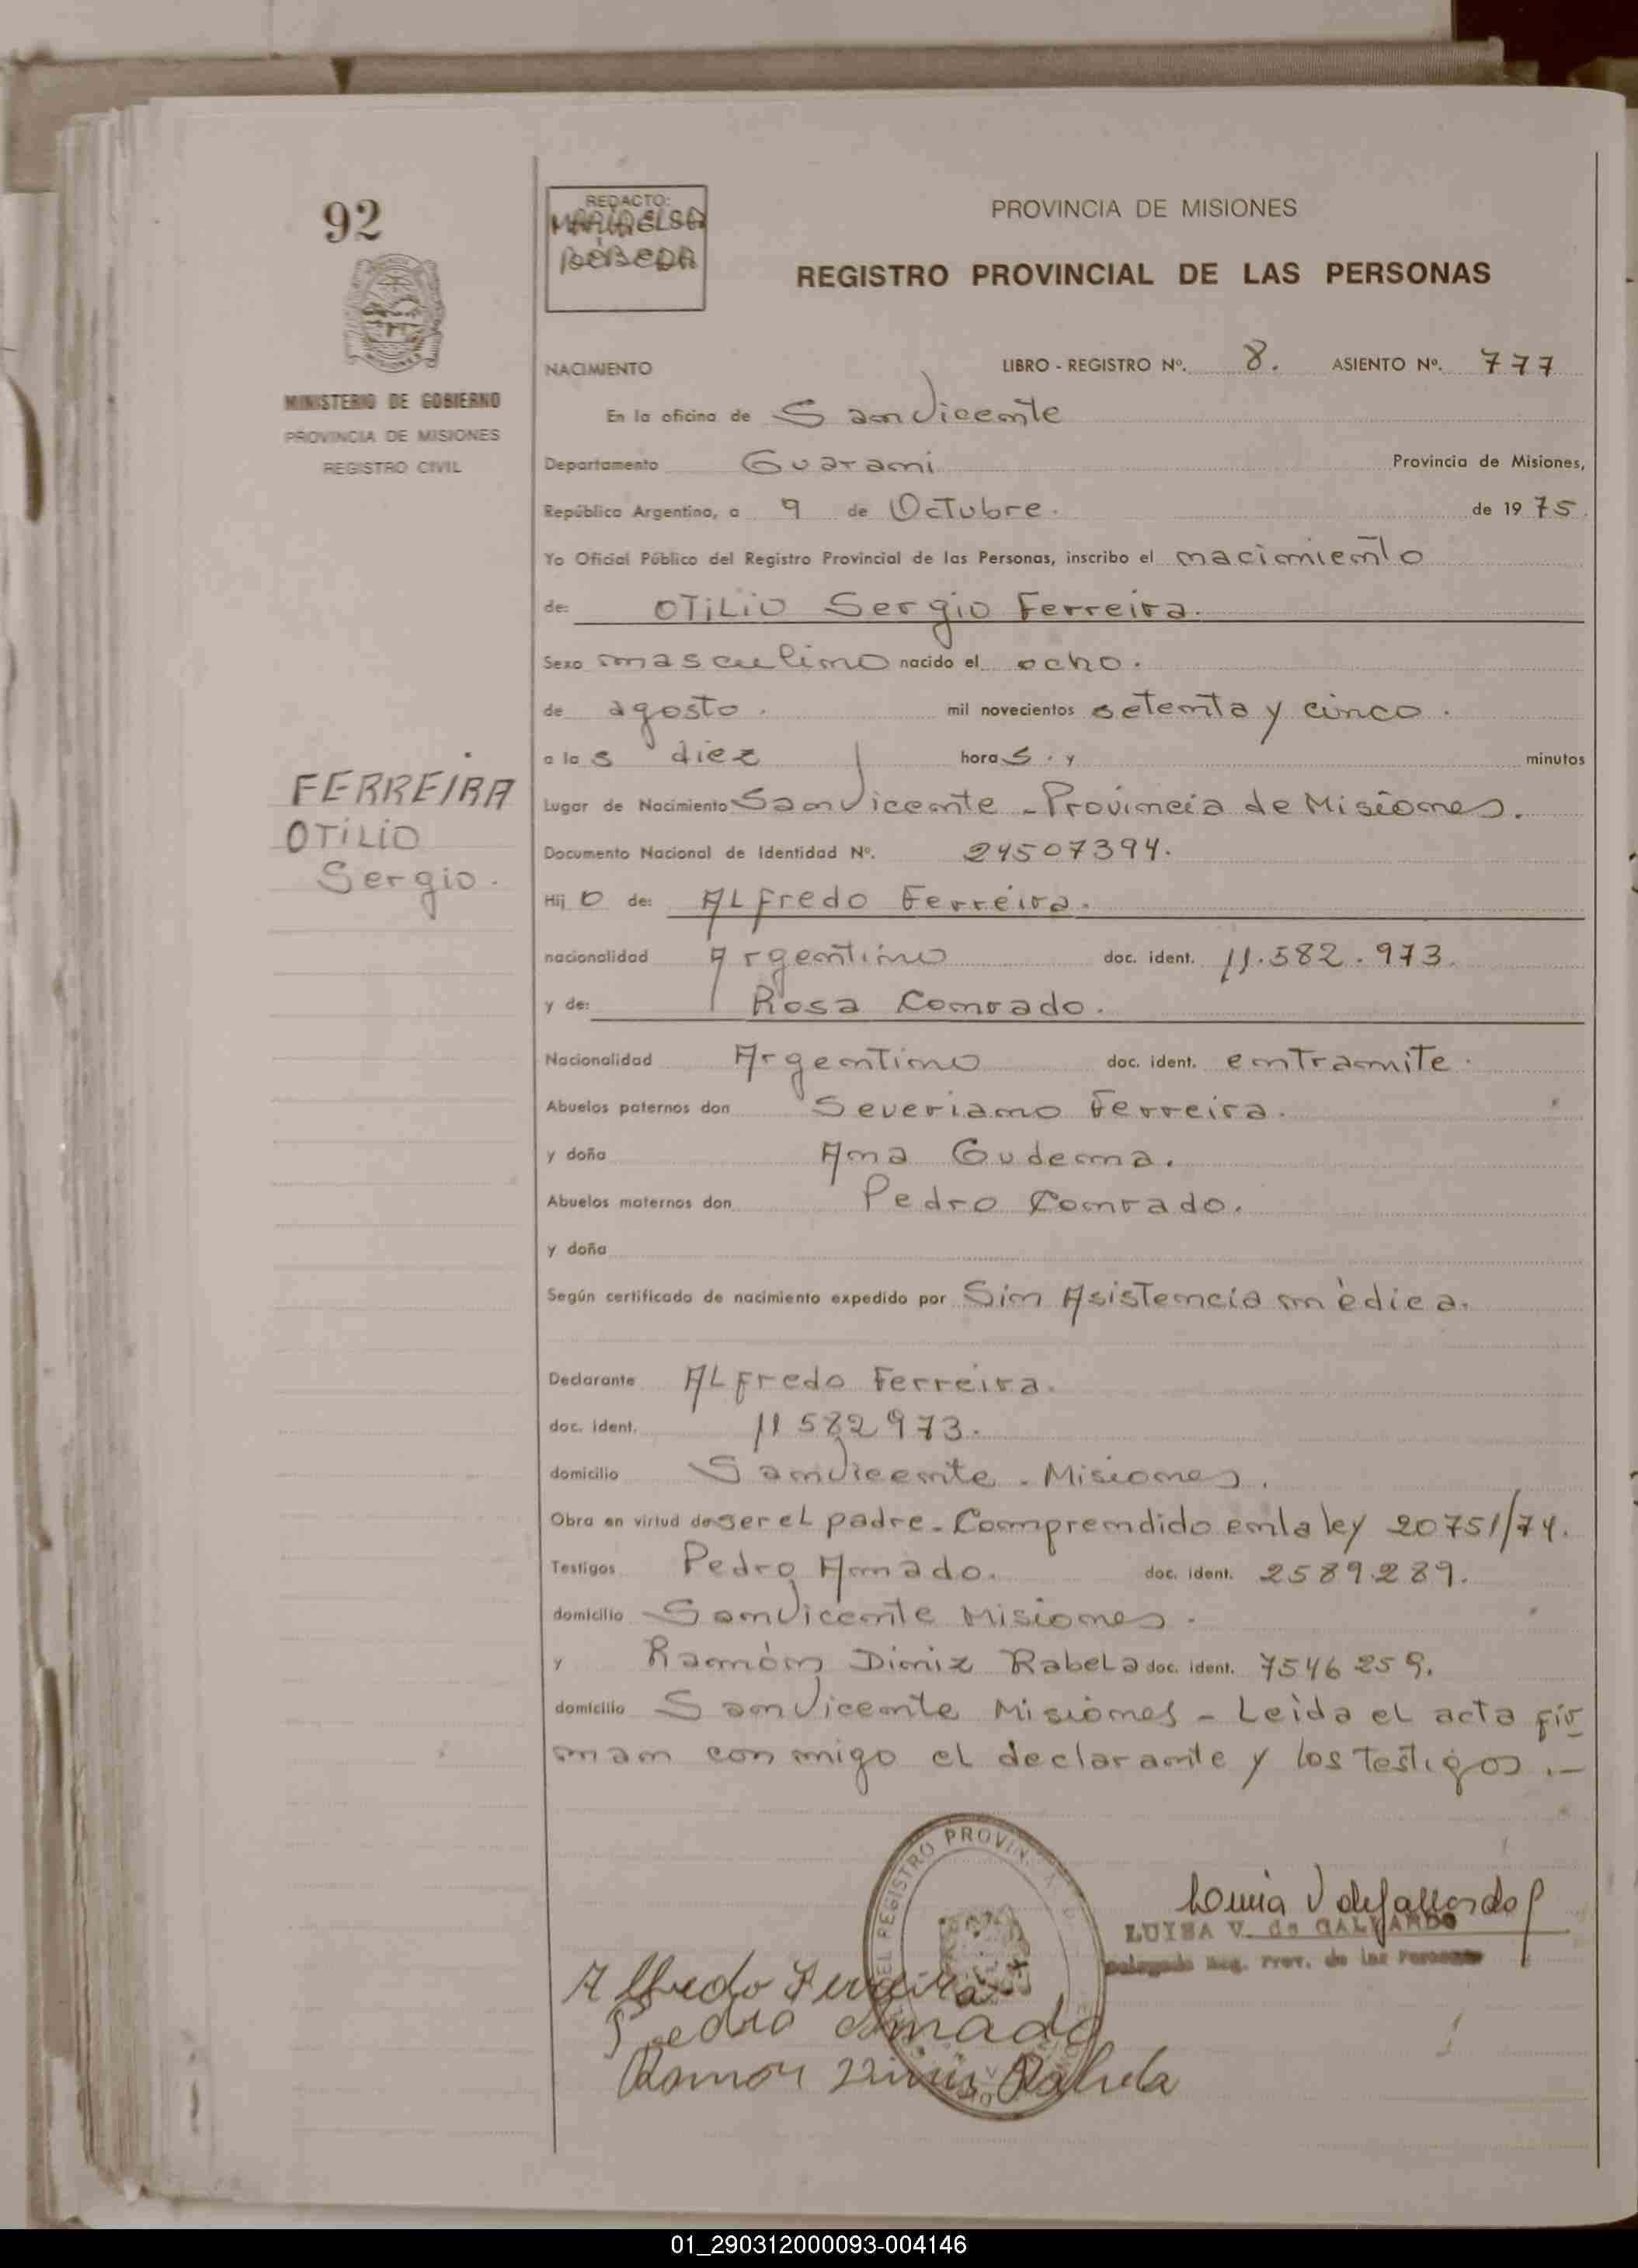 92
MINISTERIO DE GOBIERNO
PROVINCIA DE MISIONES
REGISTRO CIVIL
REDACTO:
MARIA ELSA
PROVINCIA DE MISIONES
REGISTRO PROVINCIAL DE LAS PERSONAS
NACIMIENTO LIBRO - REGISTRO Nº. 8. ASIENTO Nº. 777
En la oficina de San Vicente
Departamento Guarani Provincia de Misiones,
República Argentina, a 9 de Octubre. de 1975.
Yo Oficial Público del Registro Provincial de las Personas, inscribo el nacimiento
de: OTiLiO Sergio Ferreira.
Sexo masculino nacido el ocho.
de agosto. mil novecientos setenta y cinco.
a las diez horas. y minutos
FERREIRA
OTiLiO
Sergio.
Lugar de Nacimiento San Vicente - Provincia de Misiones.
Documento Nacional de Identidad Nº. 24507394.
Hijo de: ALfredo Ferreira.
nacionalidad Argentino doc. ident. 11.582.973.
y de: Rosa Conrado.
Nacionalidad Argentino doc. ident. en tramite.
Abuelos paternos don Severiano Ferreira.
y doña Ana Gudema.
Abuelos maternos don Pedro Conrado.
y doña
Según certificado de nacimiento expedido por Sin Asistencia mèdica.
Declarante ALfredo Ferreira.
doc. ident. 11582973.
domicilio San Vicente. Misiones.
Obra en virtud de ser eL padre. Comprendido en la ley 20751/74.
Testigos Pedro Amado. doc. ident. 2589.289.
domicilio San Vicente Misiones.
y Ramòn Diniz RabeLa doc. ident. 7546259.
domicilio San Vicente Misiones - Leìda eL acta fir
man con migo eL declarante y los testigos.-
DEL REGISTRO PROVIN
Luisa V de Gallardo
LUISA V. de GALLARDO
Delegada Reg. Prov. de las Personas
Alfredo Ferreira
Pedro Amado
Ramon Diniz Rabela
01_290312000093-004146